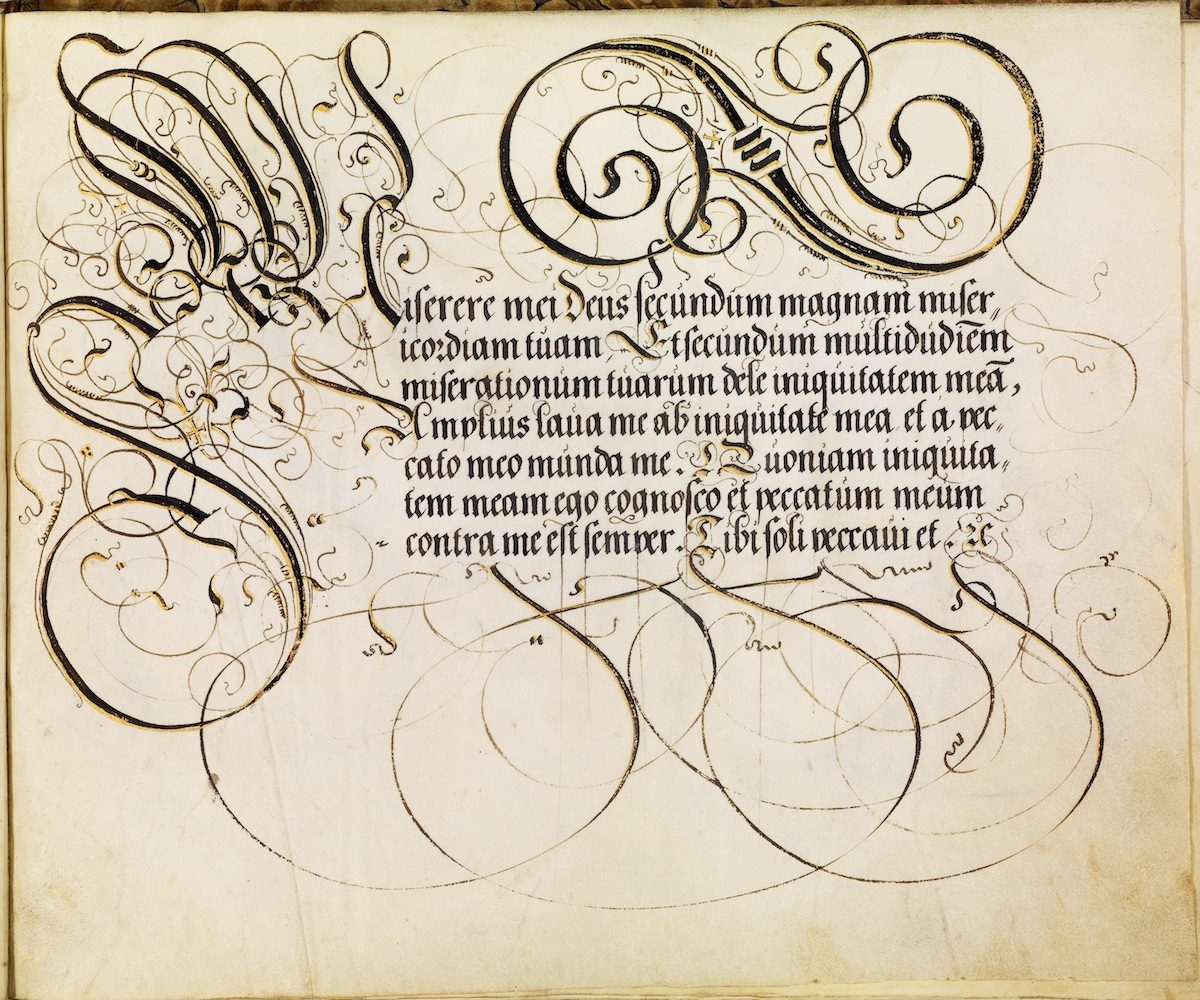 Miserere mei Deus secundum magnam miser,
icordiam tuam, Et secundum multidudiēm
miserationum tuarum dele iniquitatem meā,
Amplius laua me ab iniquitate mea et a pec,
cato meo munda me. Quoniam iniquita,
tem meam ego cognosco et peccatum meum
contra me est semper. Tibi soli peccaui et. &c